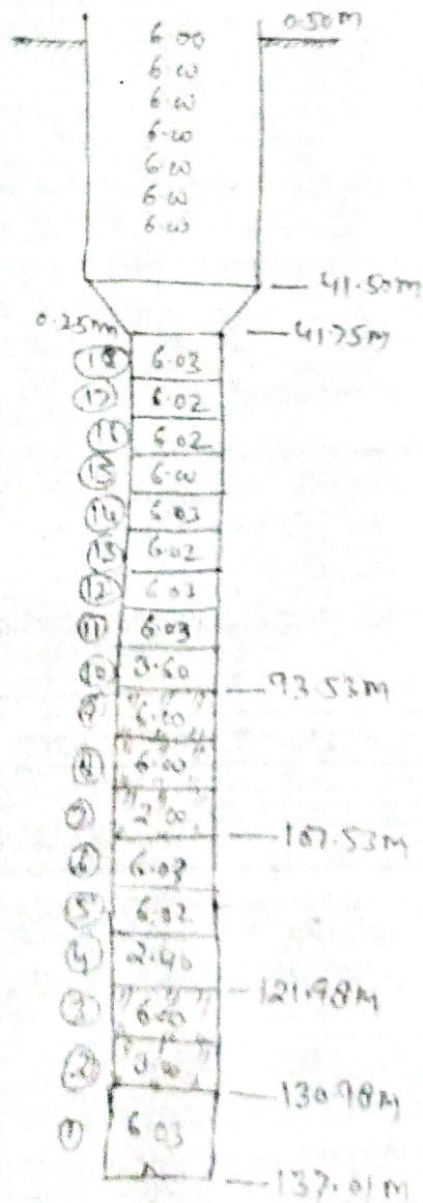 6.00 0.50m
6.00
6.00
6.00
6.00
6.00
6.00
41.50m
0.25m 41.75m
18 6.03
17 6.02
16 6.02
15 6.00
14 6.03
13 6.02
12 6.03
11 6.03
10 3.60
93.53m
9 6.00
8 6.00
7 2.00
107.53m
6 6.03
5 6.02
4 2.40
121.98m
3 6.00
2 3.00
130.98m
1 6.03
137.01m